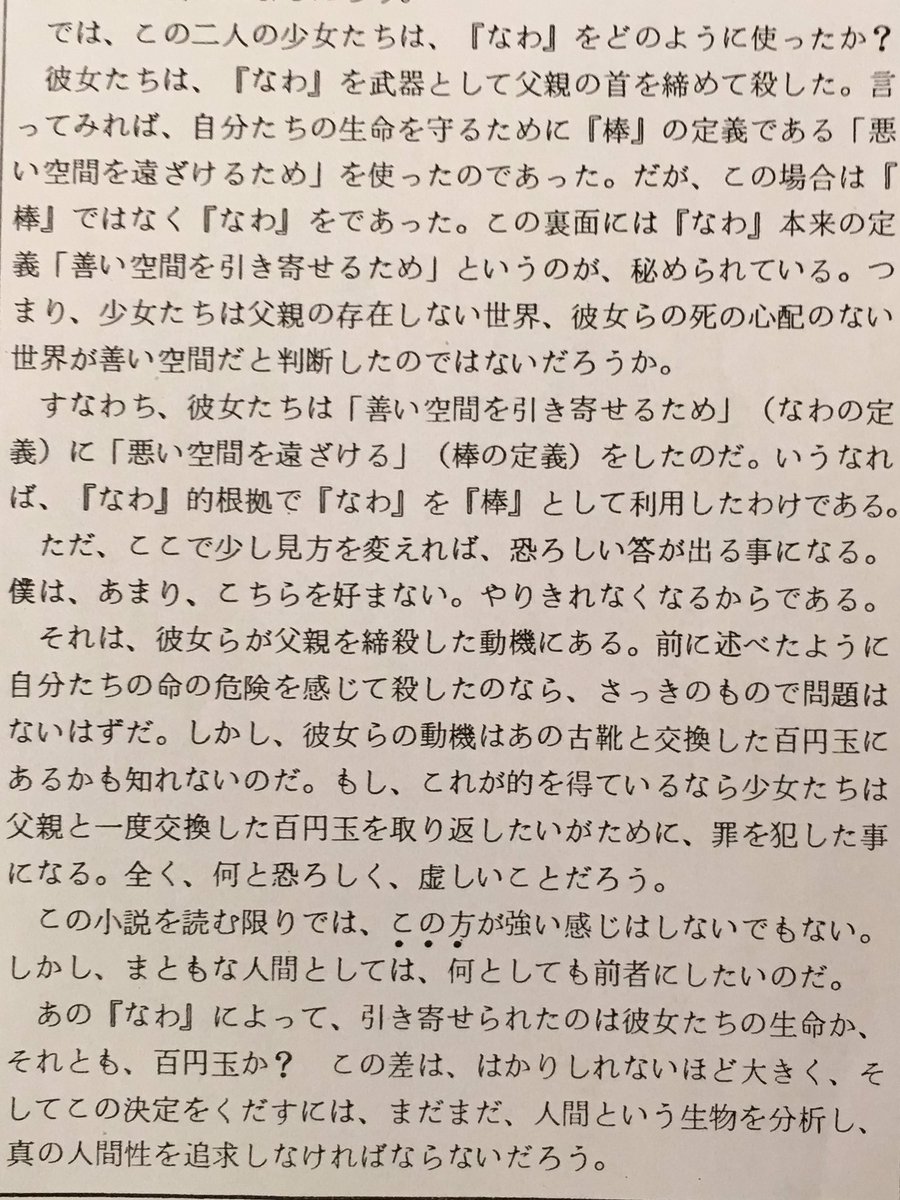 では、この二人の少女たちは、『なわ』をどのように使ったか？
彼女たちは、『なわ』を武器として父親の首を締めて殺した。言
ってみれば、自分たちの生命を守るために『棒』の定義である「悪
い空間を遠ざけるため」を使ったのであった。だが、この場合は『
棒』ではなく『なわ』をであった。この裏面には『なわ』本来の定
義「善い空間を引き寄せるため」というのが、秘められている。つ
まり、少女たちは父親の存在しない世界、彼女らの死の心配のない
世界が善い空間だと判断したのではないだろうか。
すなわち、彼女たちは「善い空間を引き寄せるため」（なわの定
義）に「悪い空間を遠ざける」（棒の定義）をしたのだ。いうなれ
ば、『なわ』的根拠で『なわ』を『棒』として利用したわけである。
ただ、ここで少し見方を変えれば、恐ろしい答が出る事になる。
僕は、あまり、こちらを好まない。やりきれなくなるからである。
それは、彼女らが父親を締殺した動機にある。前に述べたように
自分たちの命の危険を感じて殺したのなら、さっきのもので問題は
ないはずだ。しかし、彼女らの動機はあの古靴と交換した百円玉に
あるかも知れないのだ。もし、これが的を得ているなら少女たちは
父親と一度交換した百円玉を取り返したいがために、罪を犯した事
になる。全く、何と恐ろしく、虚しいことだろう。
この小説を読む限りでは、この方が強い感じはしないでもない。
しかし、まともな人間としては、何としても前者にしたいのだ。
あの『なわ』によって、引き寄せられたのは彼女たちの生命か、
それとも、百円玉か？　この差は、はかりしれないほど大きく、そ
してこの決定をくだすには、まだまだ、人間という生物を分析し、
真の人間性を追求しなければならないだろう。